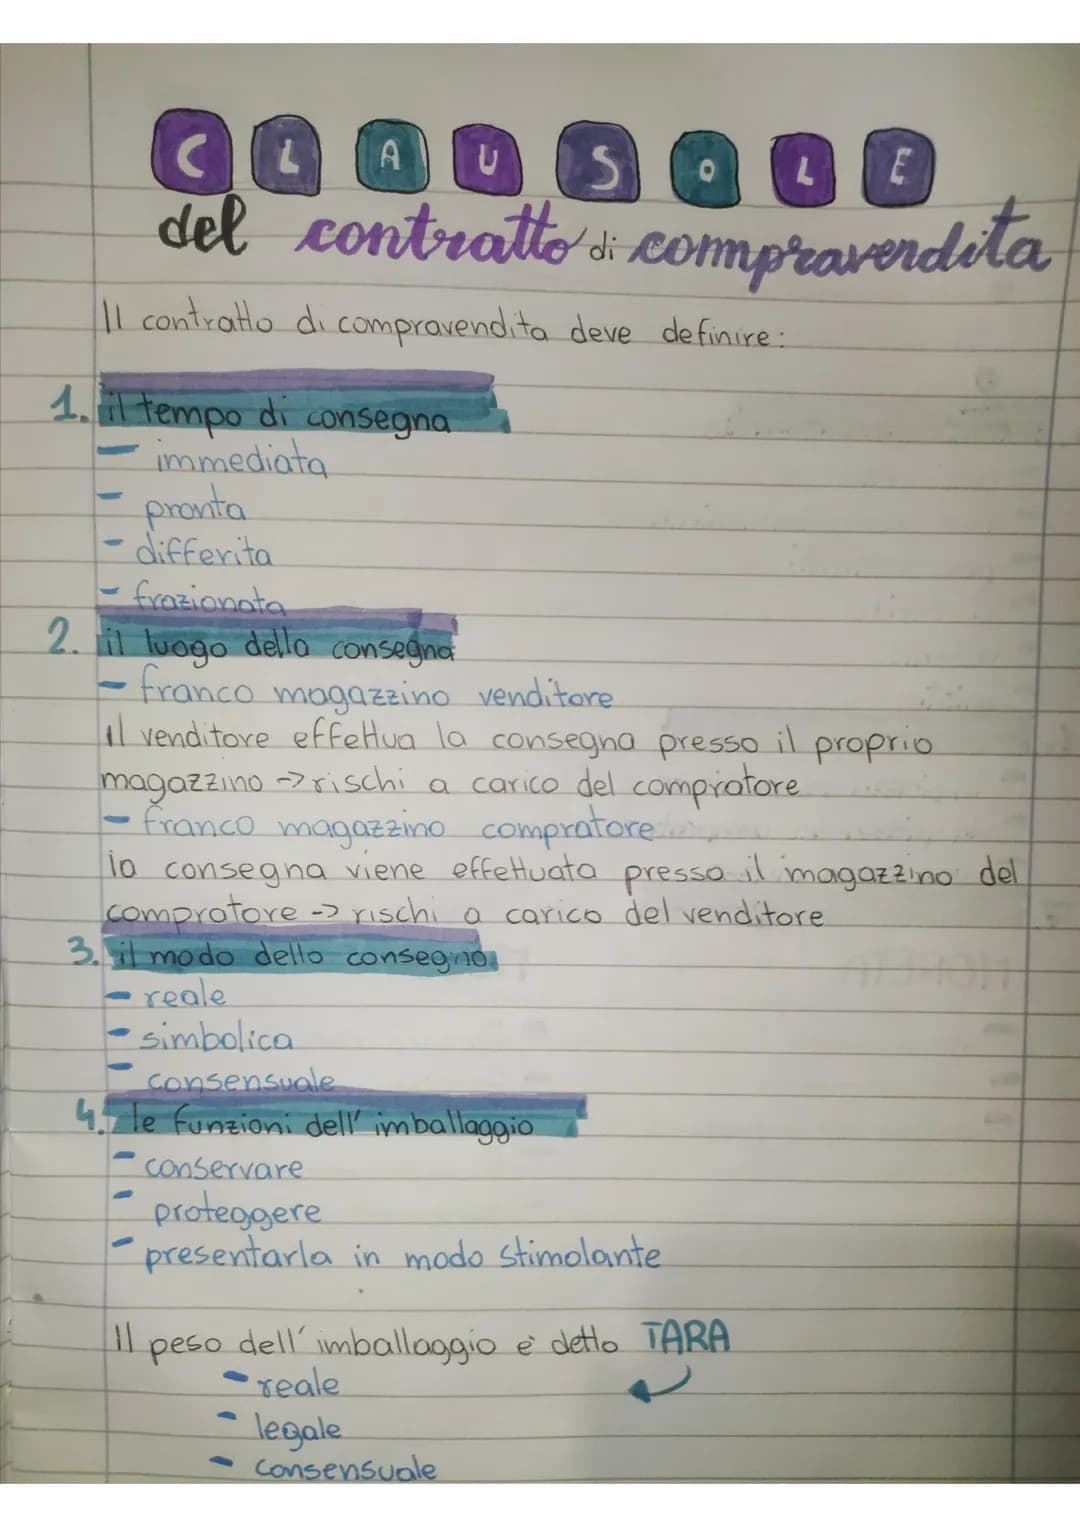 CLAUSOLE
del contratto di compravendita
Il contratto di compravendita deve definire:
1. il tempo di consegna
- immediata
- pronta
- differita
- frazionata
2. il luogo della consegna
- franco magazzino venditore
Il venditore effettua la consegna presso il proprio
magazzino -> rischi a carico del compratore
- franco magazzino compratore
la consegna viene effettuata presso il magazzino del
compratore -> rischi a carico del venditore
3. il modo della consegna
- reale
- simbolica
- consensuale
4. le funzioni dell'imballaggio
- conservare
- proteggere
- presentarla in modo stimolante
Il peso dell'imballaggio è detto TARA
- reale
- legale
- consensuale